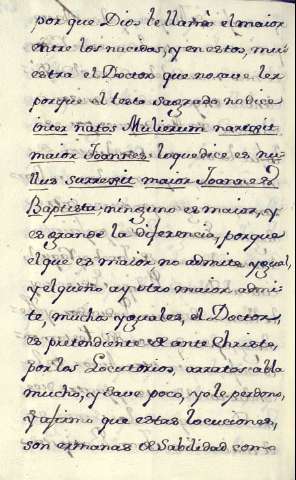 por que Dios le llamò el maior
entre los nacidos, y en estos, mu-
estra el Doctor que no save leer
porque el testo sagrado no dice
inter natos Mulierum
maior Joannes: loque dice es nu-
llus surrexit maior Joanne
Baptista; ninguno es maior, y
es grande la diferencia, porque
el que es maior no admite ygual,
y el que no ay otro maior admi-
te, muchos yguales, el Doctor,
es pretendiente de ante Christo,
por los Locutorios, a rratos abla
mucho, y save poco, yo le perdono,
y afirmo que estas locuciones,
son ermanas de Sabilidad, como